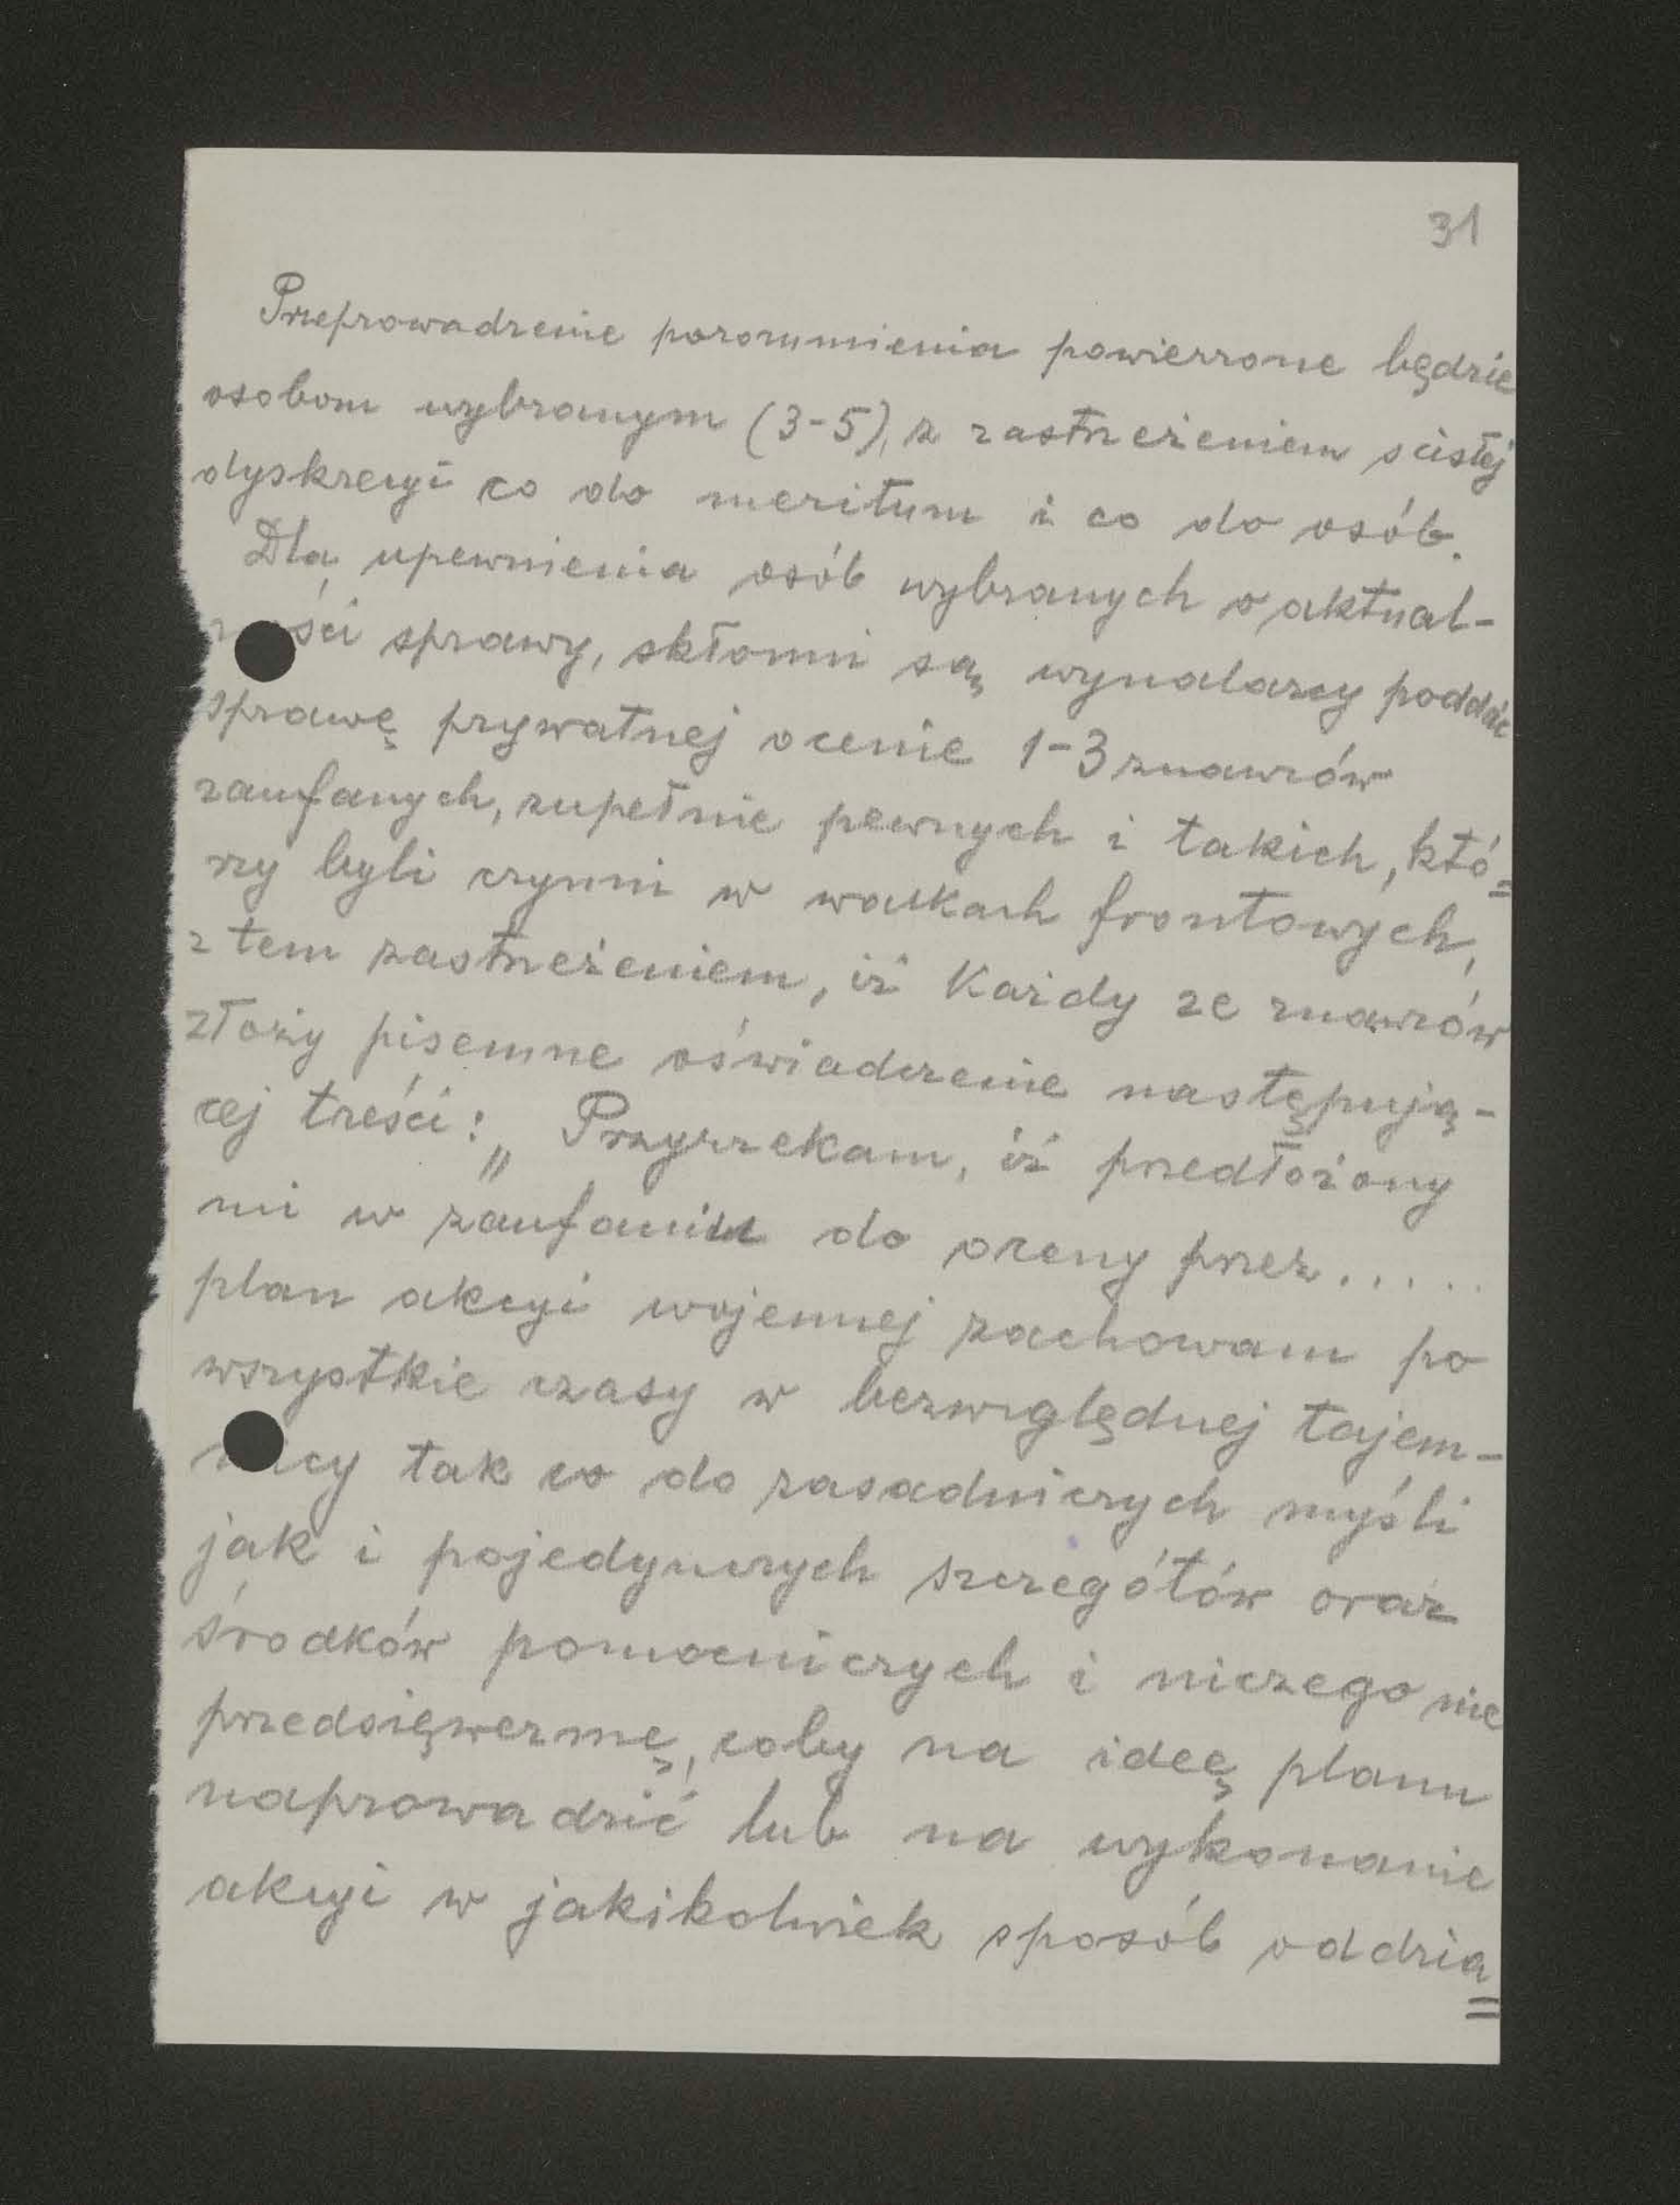 31
Przeprowadzenie porozumienia powierzone będzie
osobom wybranym (3-5), z zastrzeżeniem ścisłej
dyskrecyi co do meritum i co do osób.
Dla upewnienia osób wybranych o aktual-
ności sprawy, skłonni są wynalazcy poddać
sprawę prywatnej ocenie 1-3 znawców
zaufanych, zupełnie pewnych i takich, któ=
rzy byli czynni w walkach frontowych,
z tem zastrzeżeniem, iż każdy ze znawców
złoży pisemne oświadczenie następują-
cej treści: „Przyrzekam, iż przedłożony
mi w zaufaniu do oceny przez.....
plan akcyi wojennej zachowam po
wszystkie czasy w bezwzględnej tajem-
nicy tak co do zasadniczych myśli
jak i pojedynczych szczegółów oraz
środków pomocniczych i niczego nie
przedsięwezmę, coby na ideę planu
naprowadzić lub na wykonanie
akcyi w jakikolwiek sposób oddzia=